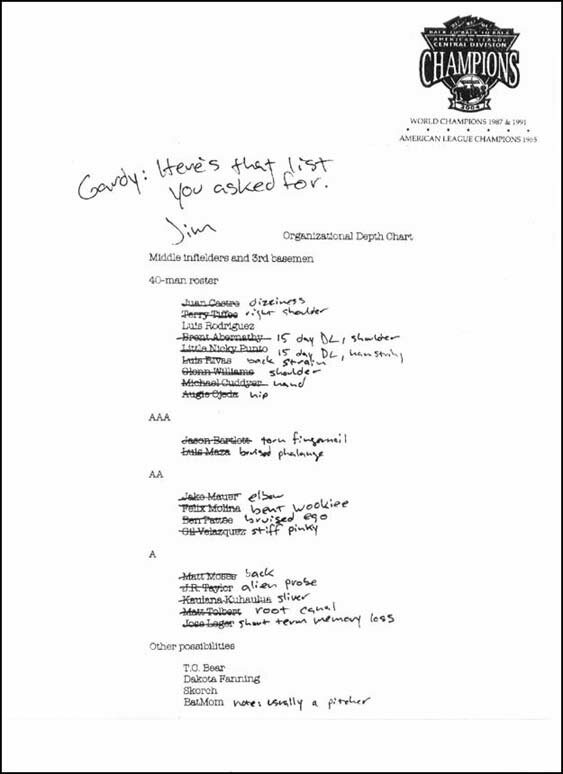 BACK TO BACK TO BACK
AMERICAN LEAGUE
CENTRAL DIVISION
CHAMPIONS
2004
WORLD CHAMPIONS 1987 & 1991
AMERICAN LEAGUE CHAMPIONS 1965
Gardy: Here's that list
you asked for.
Jim
Organizational Depth Chart
Middle infielders and 3rd basemen
40-man roster
Juan Castro dizziness
Terry Tiffee right shoulder
Luis Rodriguez
Brent Abernathy 15 day DL, shoulder
Little Nicky Punto 15 day DL, hamstring
Luis Rivas back strain
Glenn Williams shoulder
Michael Cuddyer hand
Augie Ojeda hip
AAA
Jason Bartlett torn fingernail
Luis Maza bruised phalange
AA
Jake Mauer elbow
Felix Molina bent wookiee
Ben Pattee bruised ego
Gil Velazquez stiff pinky
A
Matt Moses back
J.R. Taylor alien probe
Kaulana Kuhaulua sliver
Matt Tolbert root canal
Jose Leger short term memory loss
Other possibilities
T.C. Bear
Dakota Fanning
Skorch
BatMom note: usually a pitcher